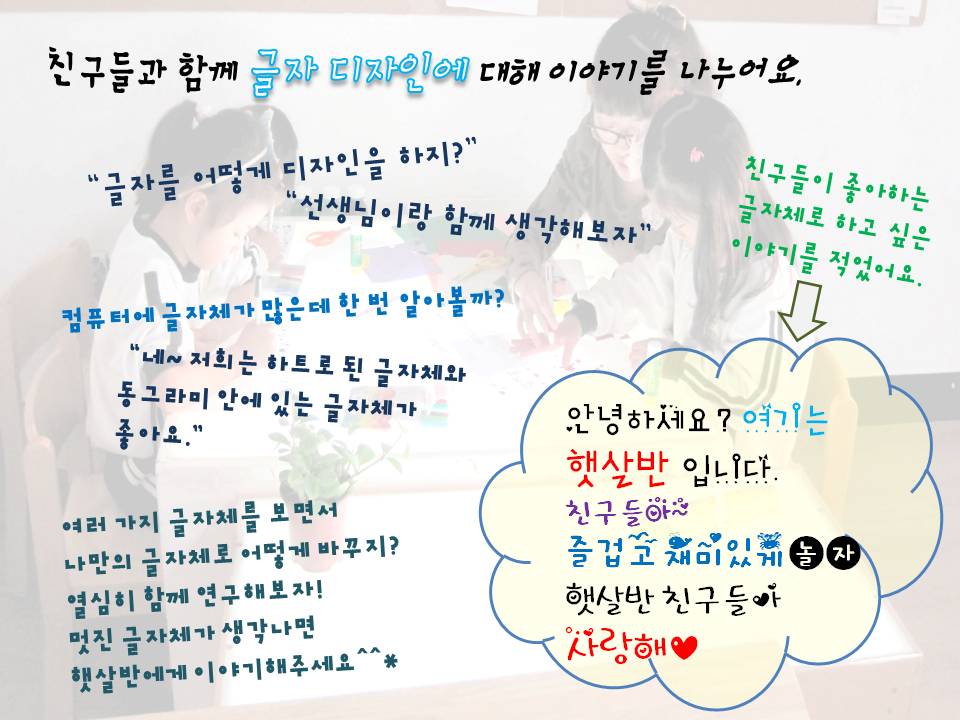 친구들과 함께 글자 디자인에 대해 이야기를 나누어요.
“글자를 어떻게 디자인을 하지?”
“선생님이랑 함께 생각해보자”
친구들이 좋아하는
글자체로 하고 싶은
이야기를 적었어요.
컴퓨터에 글자체가 많은데 한 번 알아볼까?
“네~ 저희는 하트로 된 글자체와
동그라미 안에 있는 글자체가
좋아요.”
안녕하세요? 여기는
햇살반 입니다.
친구들아~
즐겁고 재미있게 놀자
햇살반 친구들아
사랑해♥
여러 가지 글자체를 보면서
나만의 글자체로 어떻게 바꾸지?
열심히 함께 연구해보자!
멋진 글자체가 생각나면
햇살반에게 이야기해주세요^^*